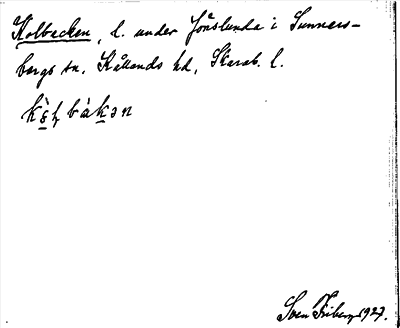 Kolbecken, l. under Jönslunda i Sunners-
bergs sn. Kållands hd, Skarab. l.
bàkən
Sven Friberg 1927.